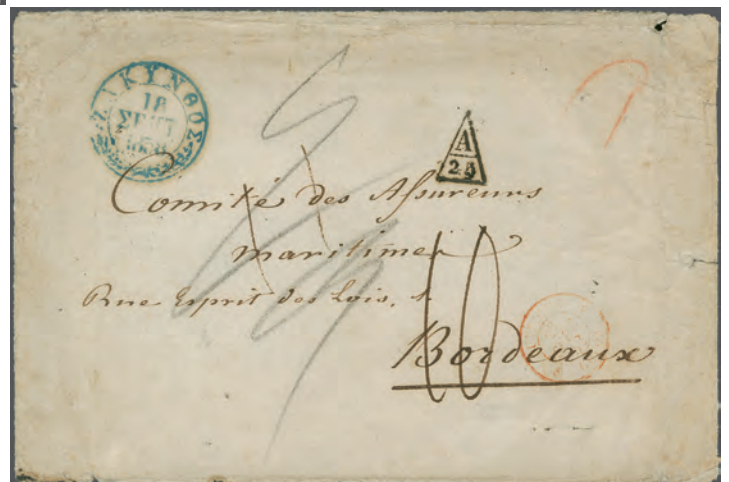 ΖΑΚΥΝΘΟΣ
18
ΣΕΠΤ
A
25
Comité des Assureurs
maritimes
Rue Esprit des Lois, 1.
10
Bordeaux